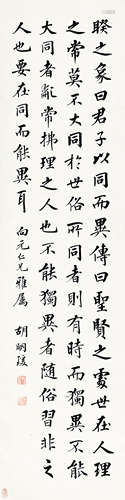 睽之象曰君子以同而異傳曰聖賢之處世在人理
之常莫不大同於世俗所同者則有時而獨異不能
大同者亂常拂理之人也不能獨異者隨俗習非之
人也要在同而能異耳 向元仁兄雅屬 胡嗣瑗